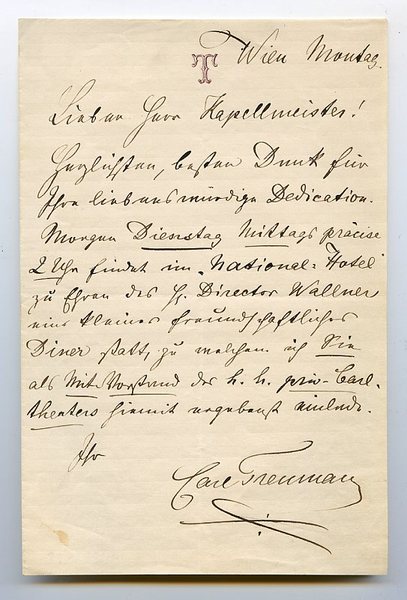 T
Wien Montag.
Lieber Herr Kapellmeister!
Herzlichsten, besten Dank für
Ihre liebenswürdige Dedication.
Morgen Dienstag Mittags präcise
2 Uhr findet im „National-Hotel"
zu Ehren des H. Director Wallner
ein kleines freundschaftliches
Diner statt, zu welchem ich Sie
als Mit-Vorstand des k. k. priv. Carl-
theaters hiemit ergebenst einlade.
Ihr
Carl Treumann